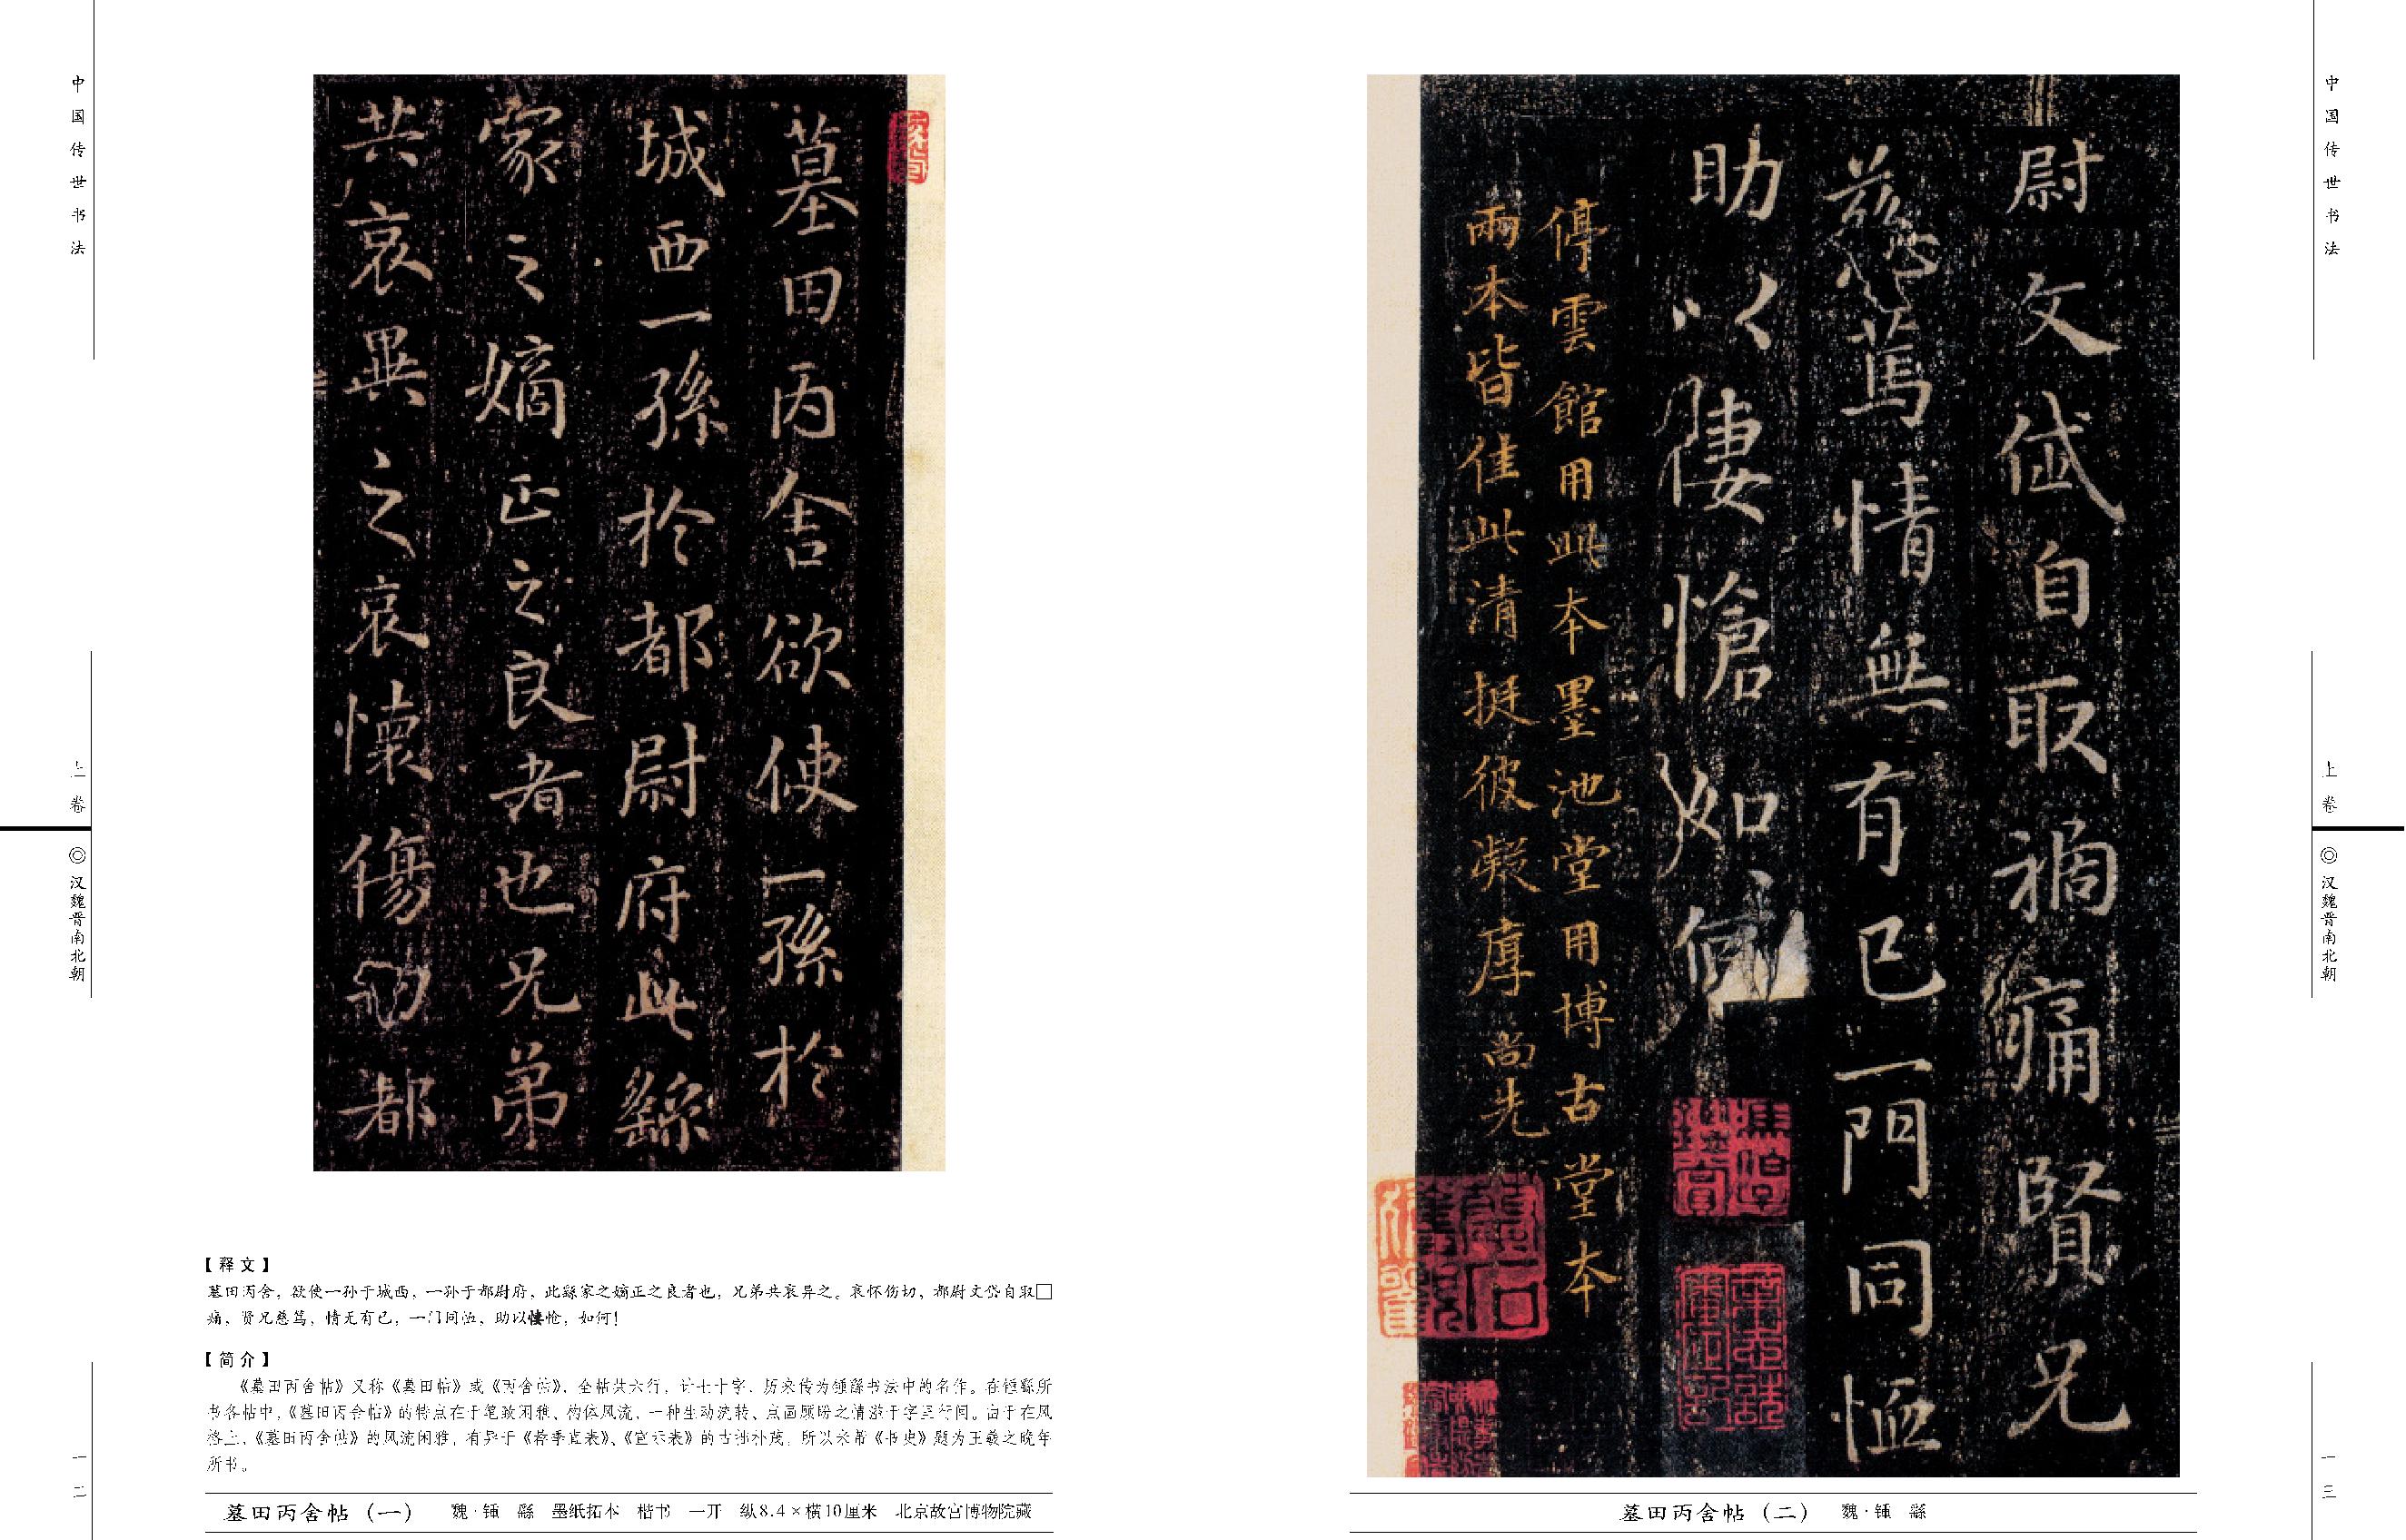 中国传世书法
上卷
◎汉魏晋南北朝
一二
墓田丙舍欲使一孫於
城西一孫於都尉府此繇
家之嫡正之良者也兄弟
共哀異之哀懷傷切都
【释文】
墓田丙舍，欲使一孙于城西，一孙于都尉府，此繇家之嫡正之良者也，兄弟共哀异之。哀怀伤切，都尉文岱自取□
痛，贤兄慈笃，情无有已，一门同恤，助以悽怆，如何！
【简介】
《墓田丙舍帖》又称《墓田帖》或《丙舍帖》，全帖共六行，计七十字，历来传为锺繇书法中的名作。在锺繇所
书各帖中，《墓田丙舍帖》的特点在于笔致闲雅、构体风流，一种生动流转、点画顾盼之情溢于字里行间。由于在风
格上，《墓田丙舍帖》的风流闲雅，有异于《荐季直表》、《宣示表》的古雅朴茂，所以米芾《书史》题为王羲之晚年
所书。
墓田丙舍帖（一） 魏·锺 繇 墨纸拓本 楷书 一开 纵8.4×横10厘米 北京故宫博物院藏
尉文岱自取禍痛賢兄
慈篤情無有已一門同恤
助以悽愴如何
停雲館用此本墨池堂用博古堂本
兩本皆佳此清挺彼凝厚尚先
墓田丙舍帖（二） 魏·锺 繇
中国传世书法
上卷
◎汉魏晋南北朝
一三